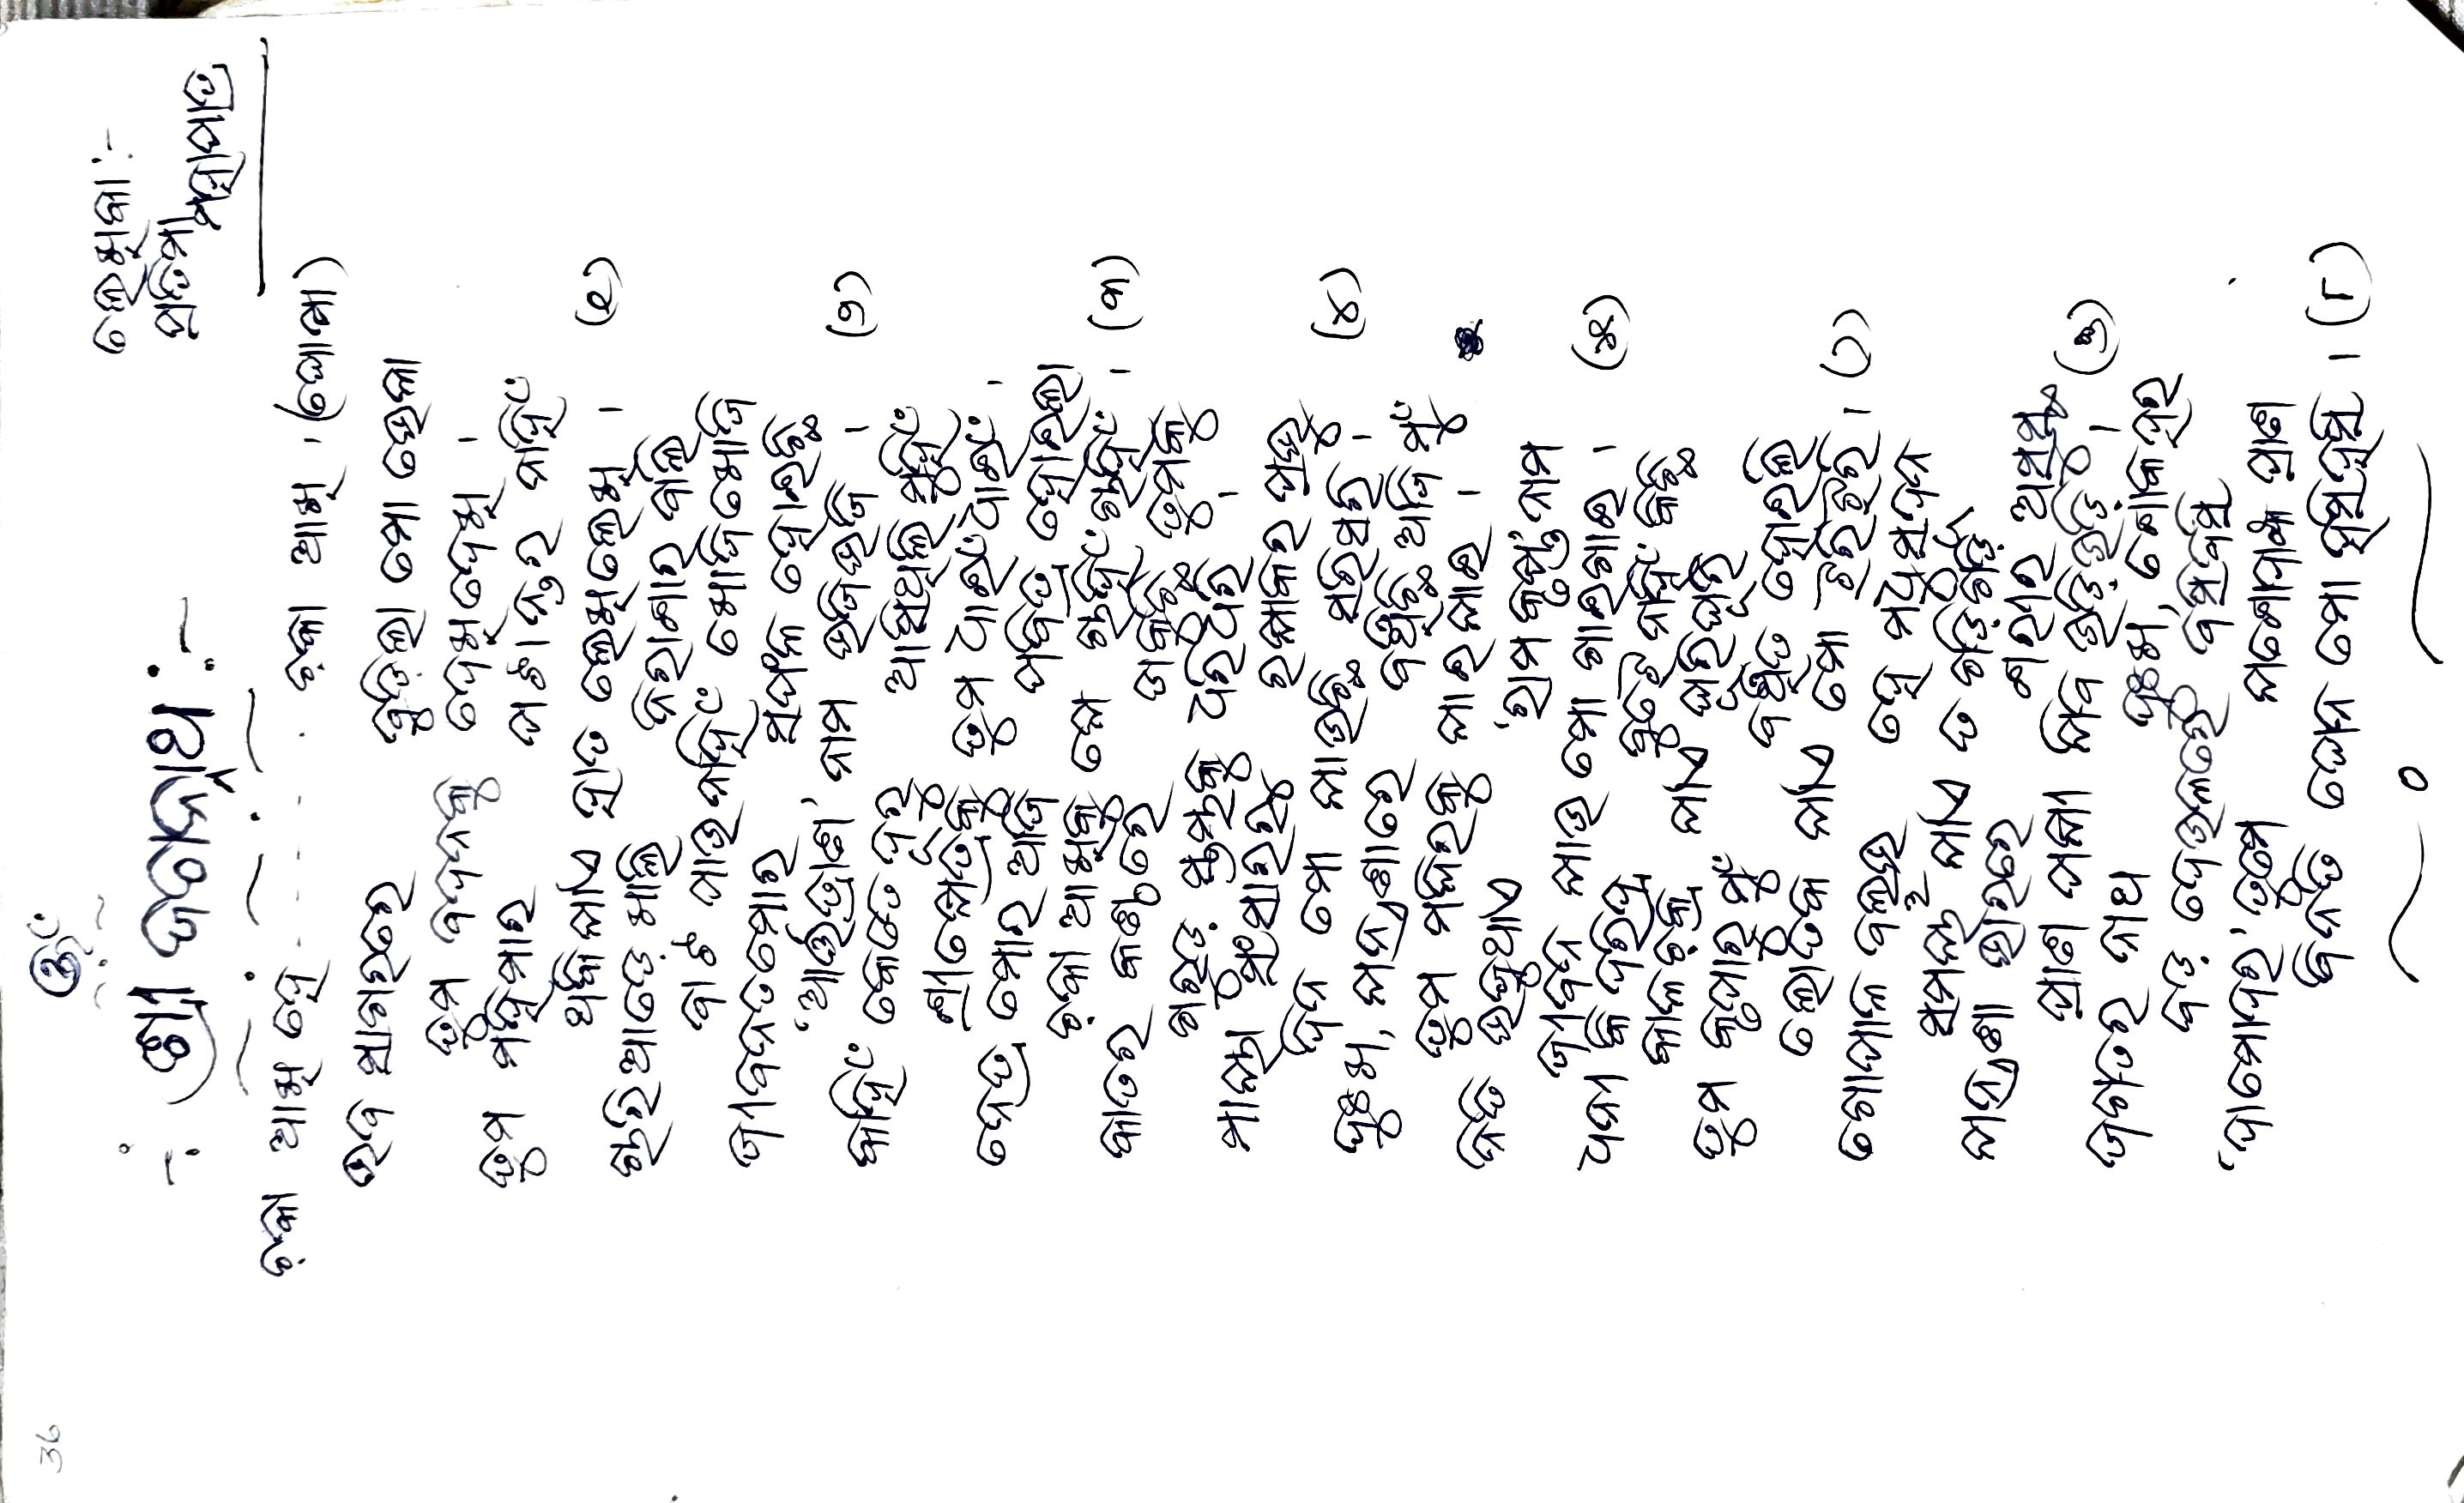 36
ଓଁ
-: ଶ୍ରୀ ଜଗନ୍ନାଥ :-
ଲେଖିକା :-
ପ୍ରତିମା ମହାପାତ୍ର
ଚକା ଆଖି ହେ - - - - - . ଚକା ଆଖି । (ଘୋଷା)
ଭବ ସାଗରରେ ବୁଡ଼ିଲା ମୋ ଭେଳା
ତୁମ ବଦନକୁ ଦେଖିଦେଖି ।
ତୁମ ମହିମାର ପଟାନ୍ତର ନାହିଁ
ଥକିଯାଏ ହାତ ଲେଖିଲେଖି । (୧)
ଚାରିଆଡ଼େ ଖାଲି ନିରାଶାର ବାଲି
ବାଟ ପାଉନାହିଁ ଖୋଜିଖୋଜି
ଜୀବନତମୋର ସଫଳ ହୋଇଛି
'ଆର୍ତ୍ତତ୍ରାଣ' ନାମ ଭଜିଭଜି । (୨)
କାହିଁ କେତେ ଦୂରୁ ଆସିଥିଲି ମୁହିଁ
ଶ୍ରୀକ୍ଷେତ୍ରକୁ ତୁମ ଧାଇଁଧାଇଁ ।
ନେତ୍ର ମୋର ଆଜି ପବିତ୍ର ହୋଇଲା
ଚକା ଆଖିକୁ ସେ ଚାହିଁଚାହିଁ । (୩)
କାତର କଣ୍ଠରେ ଡାକୁଛି ତୁମକୁ
ଗରୁଡ଼ ସ୍ତମ୍ଭକୁ ଧରିଧରି ।
ମାୟା ସଂସାରରୁ ରକ୍ଷାକର ପ୍ରଭୁ
ଦିନ ମୋ ଯାଉଛି ସରିସରି । (୪)
ଦୁଃଖ, ଯନ୍ତ୍ରଣାରେ ବଞ୍ଚିଛି ଆଜି ମୁଁ
ତୁମ ମନ୍ଦିରକୁ ଯାଇଯାଇ ।
ନିତି ଭଜୁଥାଏ 'ରାମ କୃଷ୍ଣ' ନାମ
ଜୀବନ ଯାଉ ମୋ ଗାଇଗାଇ । (୫)
ଧନୀ କି ଦରିଦ୍ର ବୁଝେ ନାହିଁ କିଛି
କାଳଚକ୍ର ଯାଏ ଘୂରିଘୂରି
ତୁମ କୃପାରୁ ମୁଁ ବଞ୍ଚିତ ହୋଇଲି
ଲୋତକ ଯାଏ ମୋ ଝରିଝରି । (୬)
ଗୋପାଳ ବଲ୍ଲଭ ହେ ମଧୁସୂଦନ
ସମୟ ଯାଏ ତ ଗଡ଼ିଗଡ଼ି
ଯନ୍ତ୍ରଣା ଭାରରେ ଶରୀର ଅସୁସ୍ଥ
ପ୍ରାଣ ପକ୍ଷୀ ଯିବ ଉଡ଼ିଉଡ଼ି । (୭)
ଜଗତର ନାଥ ଦୁଃଖ, ଶୋକ ହର
ବଡ଼ ଦେଉଳରେ ବସିବସି
'ଦାମୋଦର' ତୁମେ ଯଶୋଦାଙ୍କ ପ୍ରାଣ
ବିନତି ଘେନ ମୋ ହସିହସି । (୮)